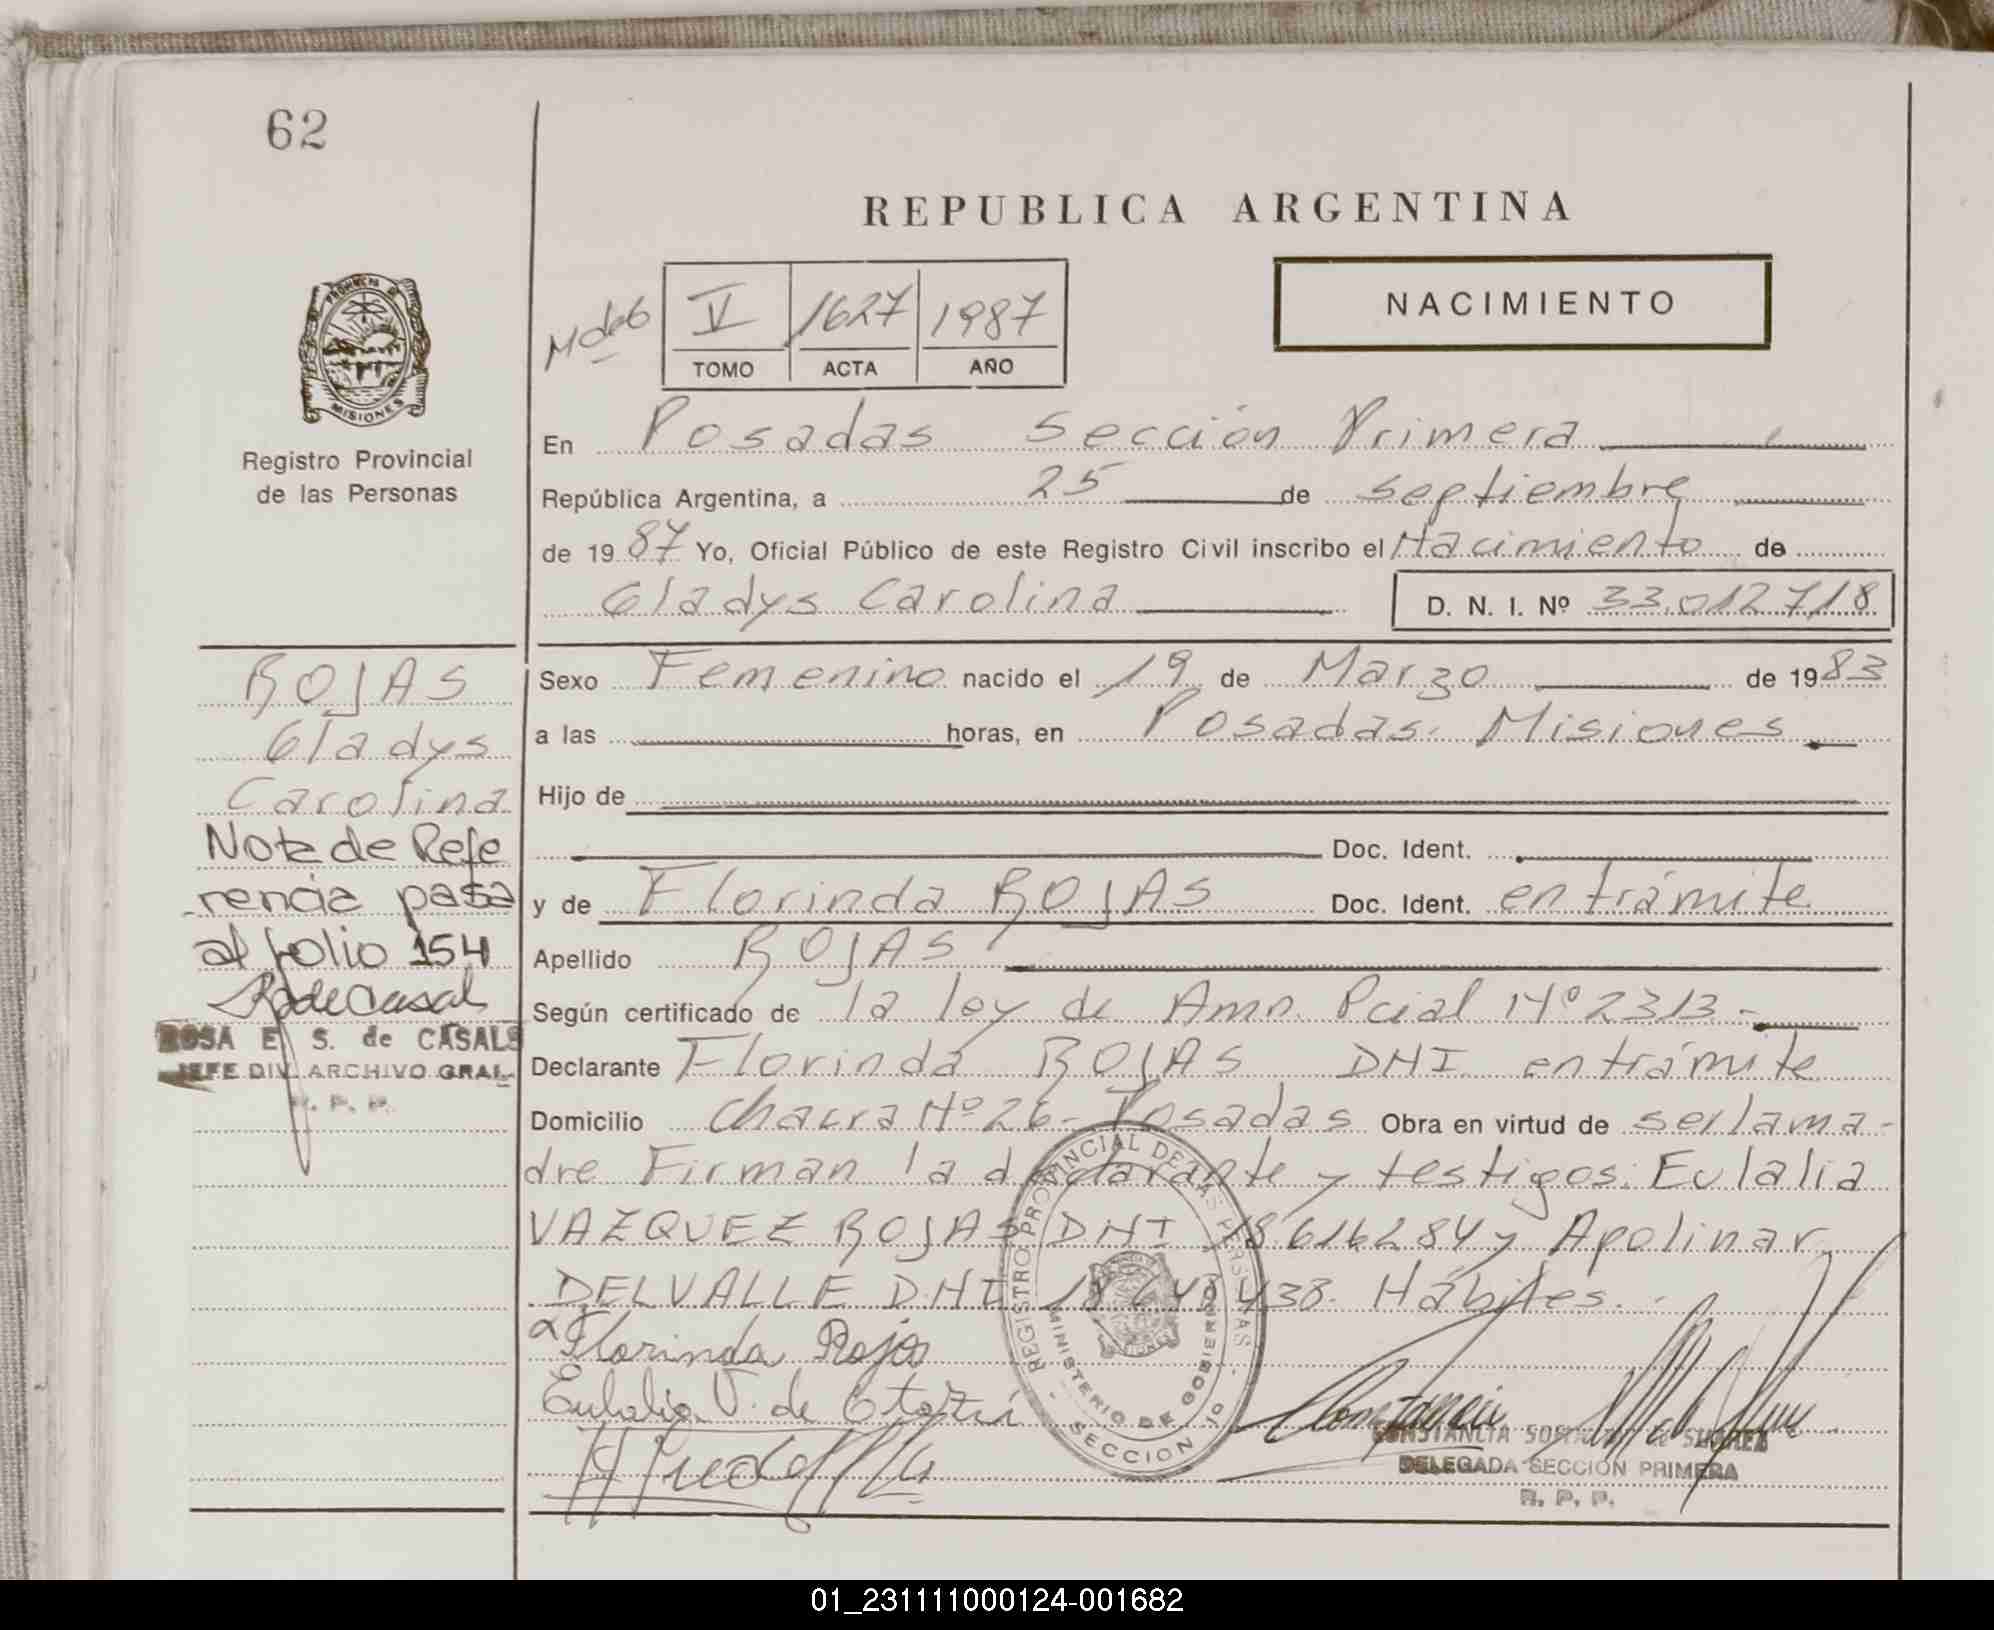 62
REPUBLICA ARGENTINA
V 1627 1987
TOMO ACTA AÑO
NACIMIENTO
PROVINCIA DE
MISIONES
Registro Provincial
de las Personas
En Posadas Sección Primera
República Argentina, a 25 de septiembre
de 1987 Yo, Oficial Público de este Registro Civil inscribo el Nacimiento de
Gladys Carolina D. N. I. Nº 33.012.718
ROJAS
Gladys
Carolina
Nota de Refe
rencia pasa
al folio 154
ROSA E. S. de CASALS
JEFE DIV. ARCHIVO GRAL.
R. P. P.
Sexo Femenino nacido el 19 de Marzo de 1983
a las horas, en Posadas. Misiones
Hijo de
Doc. Ident.
y de Florinda ROJAS Doc. Ident. en trámite
Apellido ROJAS
Según certificado de la ley de Amn. Pcial Nº 2313.-
Declarante Florinda ROJAS DNI en trámite
Domicilio Chacra Nº 26- Posadas Obra en virtud de ser la ma-
dre Firman la declarante y testigos: Eulalia
VAZQUEZ ROJAS DNI 18616284 y Apolinar
DELVALLE DNI 438. Hábiles.-
Florinda Rojas
Eulalia V. de
REGISTRO PROVINCIAL DE LAS PERSONAS
MINISTERIO DE GOBIERNO
SECCION 1º
CONSTANCIA SUAREZ
DELEGADA SECCION PRIMERA
R. P. P.
01_231111000124-001682